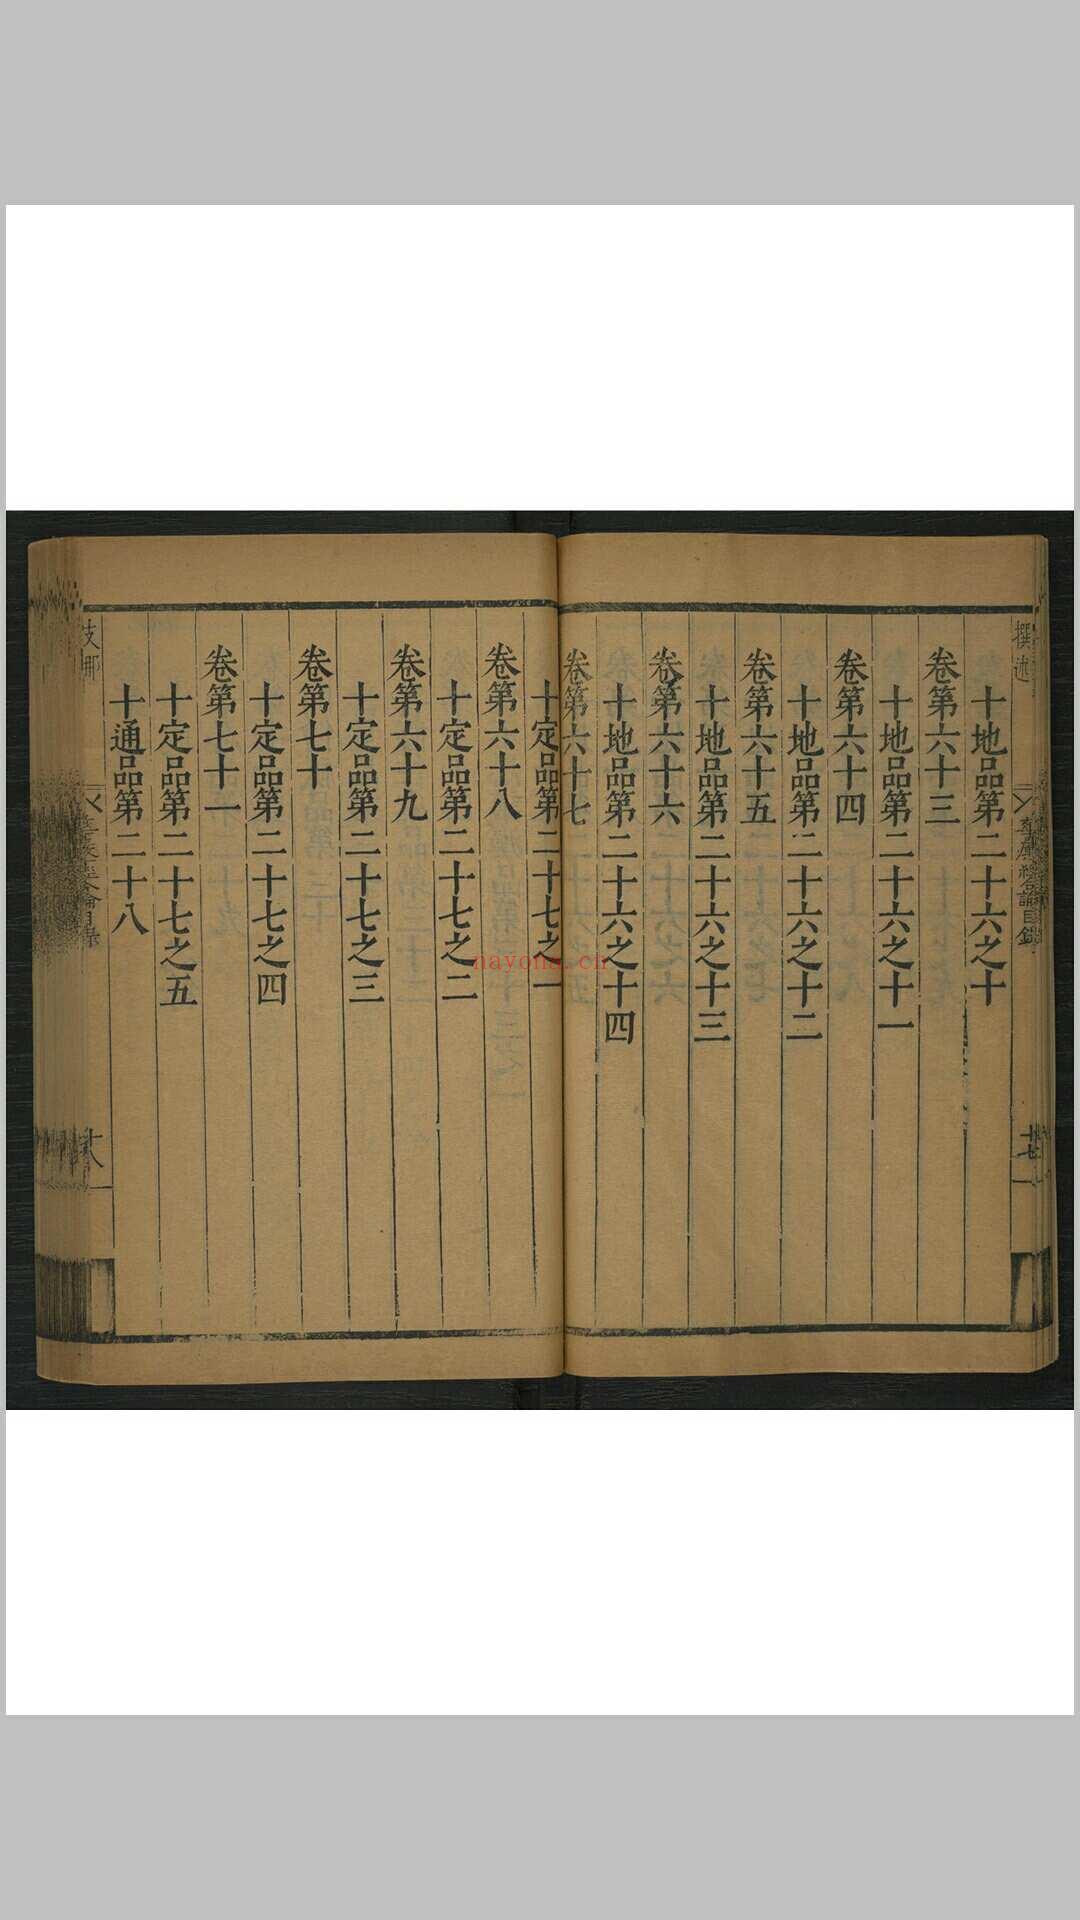 撰述
十地品第二十六之十
卷第六十三
十地品第二十六之十一
卷第六十四
十地品第二十六之十二
卷第六十五
十地品第二十六之十三
卷第六十六
十地品第二十六之十四
卷第六十七
十定品第二十七之一
卷第六十八
十定品第二十七之二
卷第六十九
十定品第二十七之三
卷第七十
十定品第二十七之四
卷第七十一
十定品第二十七之五
十通品第二十八
十七
十八
nayona.cn